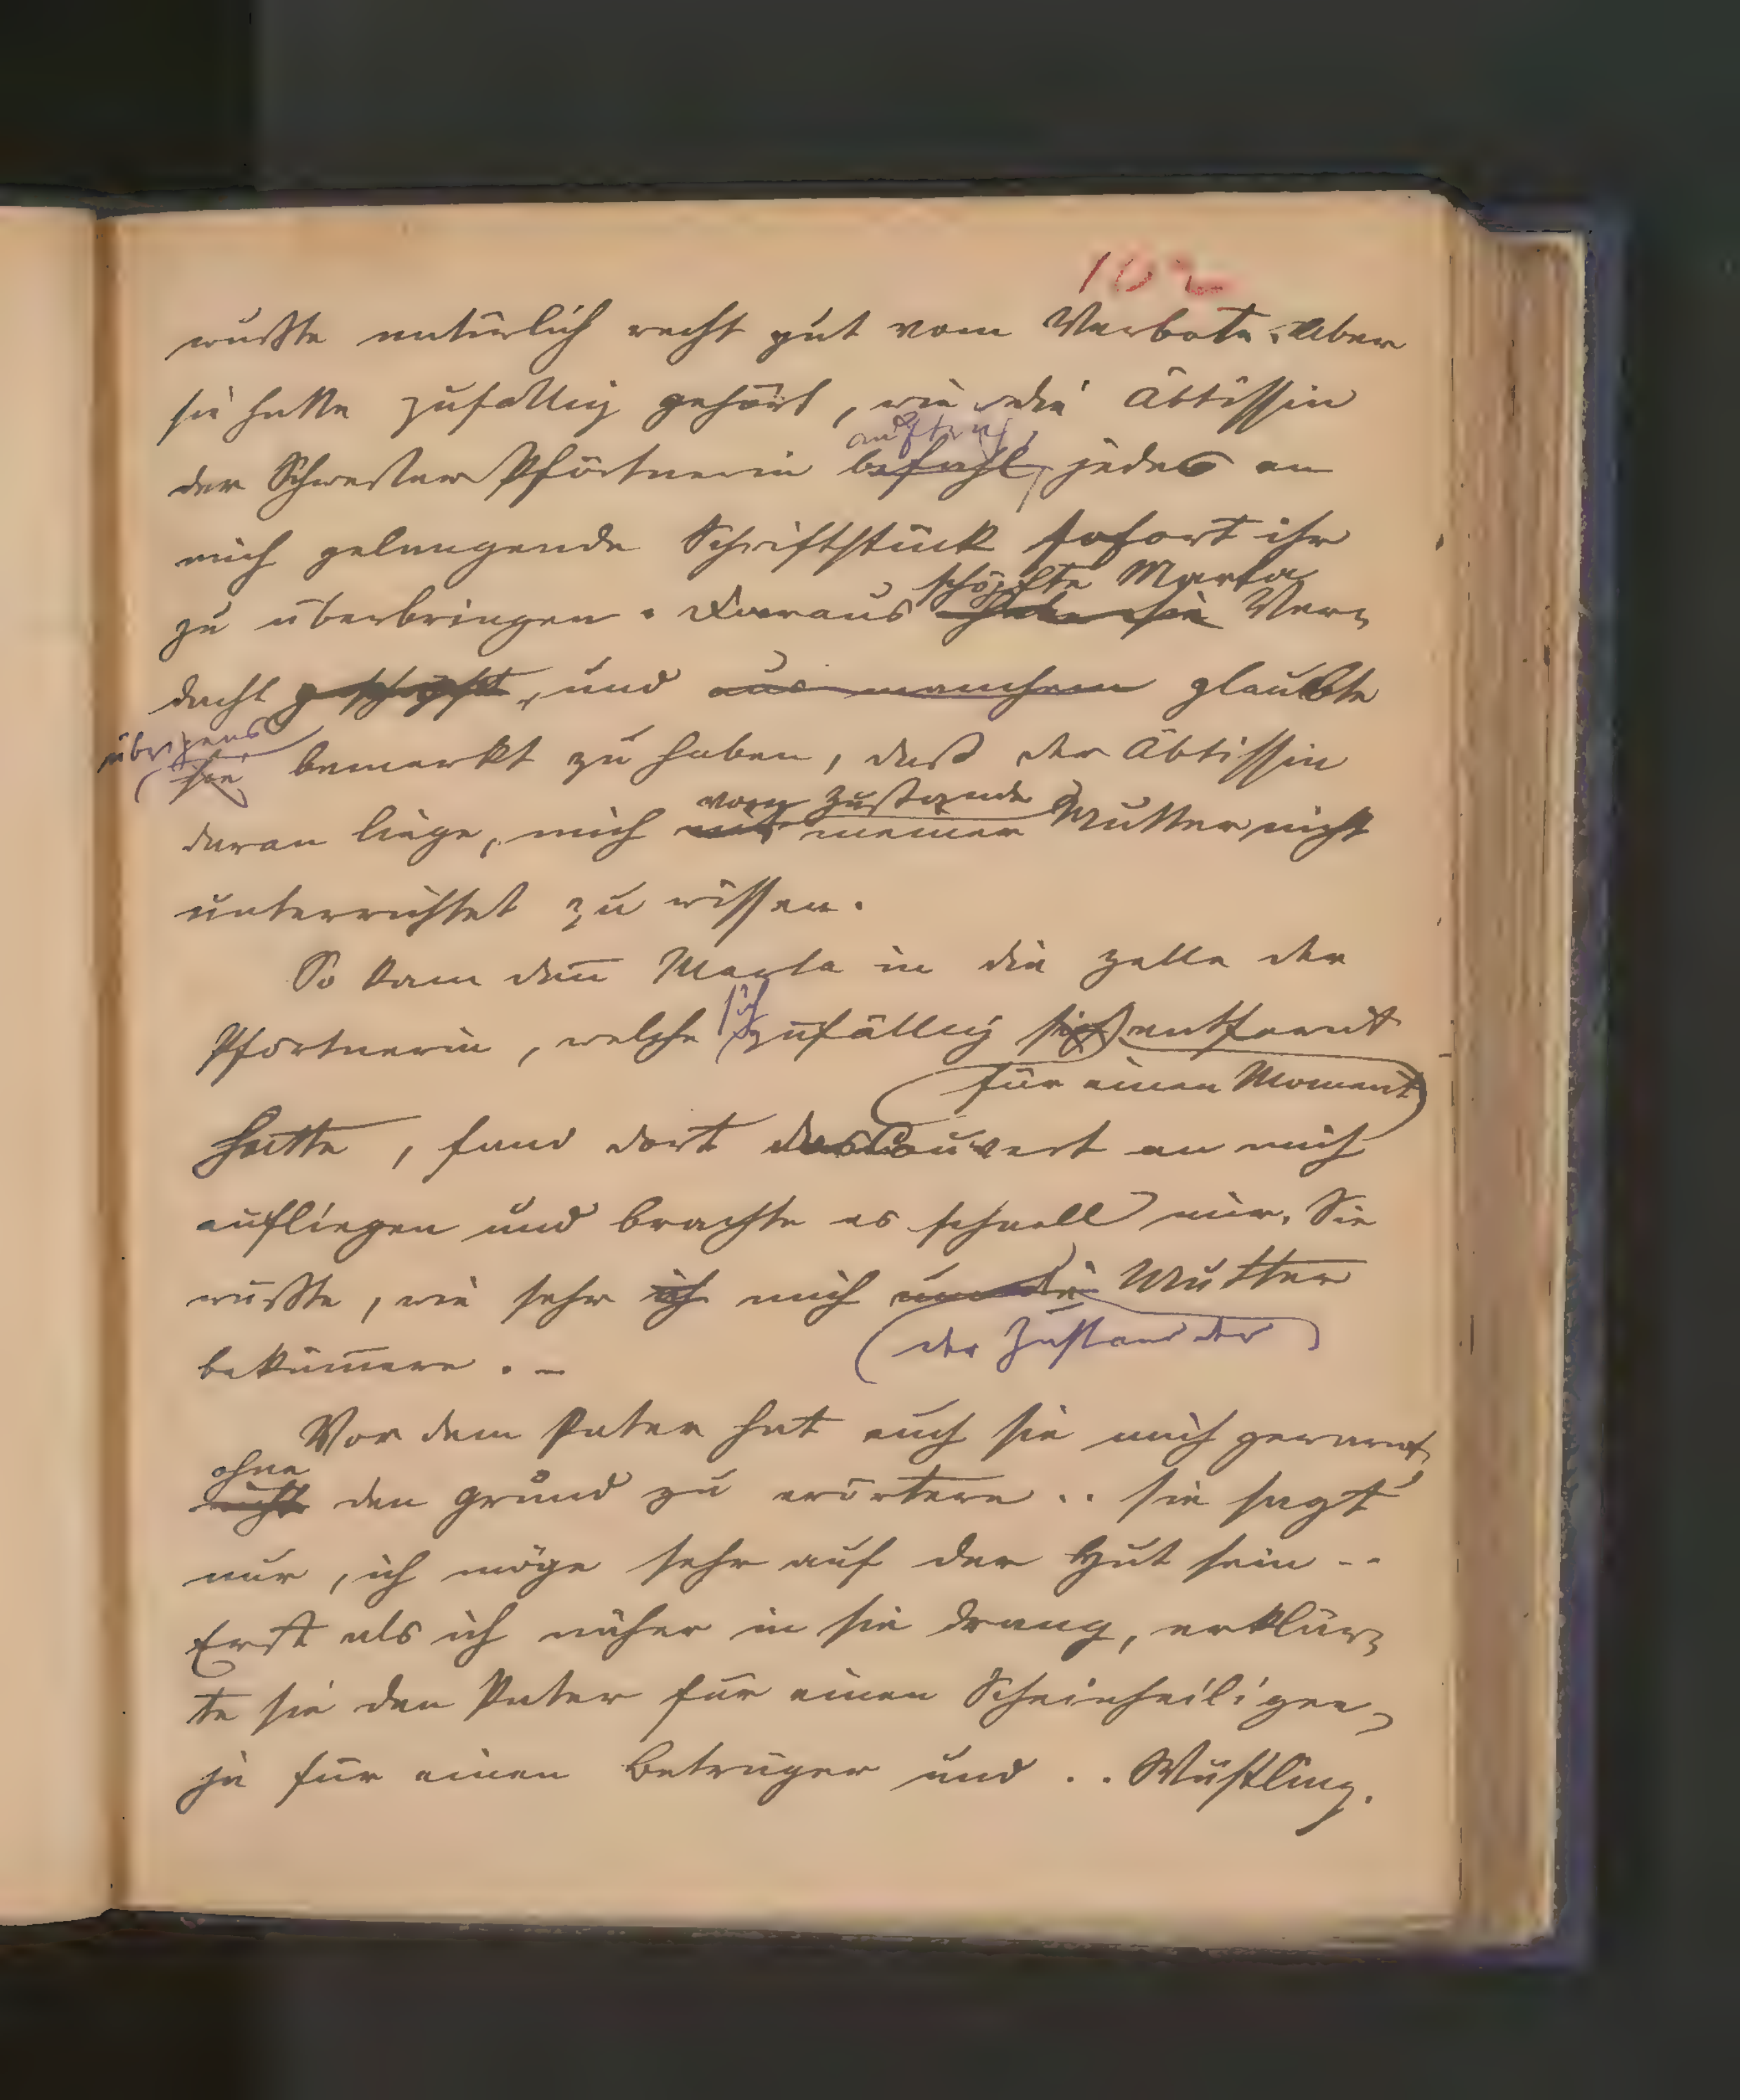 102
wußte natürlich recht gut vom Verbote. Aber
sie hatte zufällig gehört, wie die Äbtissin
auftrug,
der Schwester Pförtnerin befahl, jedes an
mich gelangende Schriftstück sofort ihr
schöpfte Marta
zu überbringen. Daraus habe sie Ver-
dacht geschöpft, und aus manchem glaubte
übrigens
sie bemerkt zu haben, daß der Äbtissin
vom Zustande
daran liege, mich mit meiner Mutter nicht
unterrichtet zu wissen.
So kam den̄ Marta in die Zelle der
sich
Pförtnerin, welche zufällig sich entfernt
für einen Moment
hatte, fand dort das Couvert an mich
aufliegen und brachte es schnell mir. Sie
wußte, wie sehr ich mich um die Mutter
der Zustand der
beküm̄ere. –
Vor dem Pater hat auch sie mich gewarnt,
ohne
nicht den Grund zu erörtern .. sie sagt'
nur, ich möge sehr auf der Hut sein --
Erst als ich näher in sie drang, erklär-
te sie den Pater für einen Scheinheiligen,
ja für einen Betrüger und .. Wüstling.